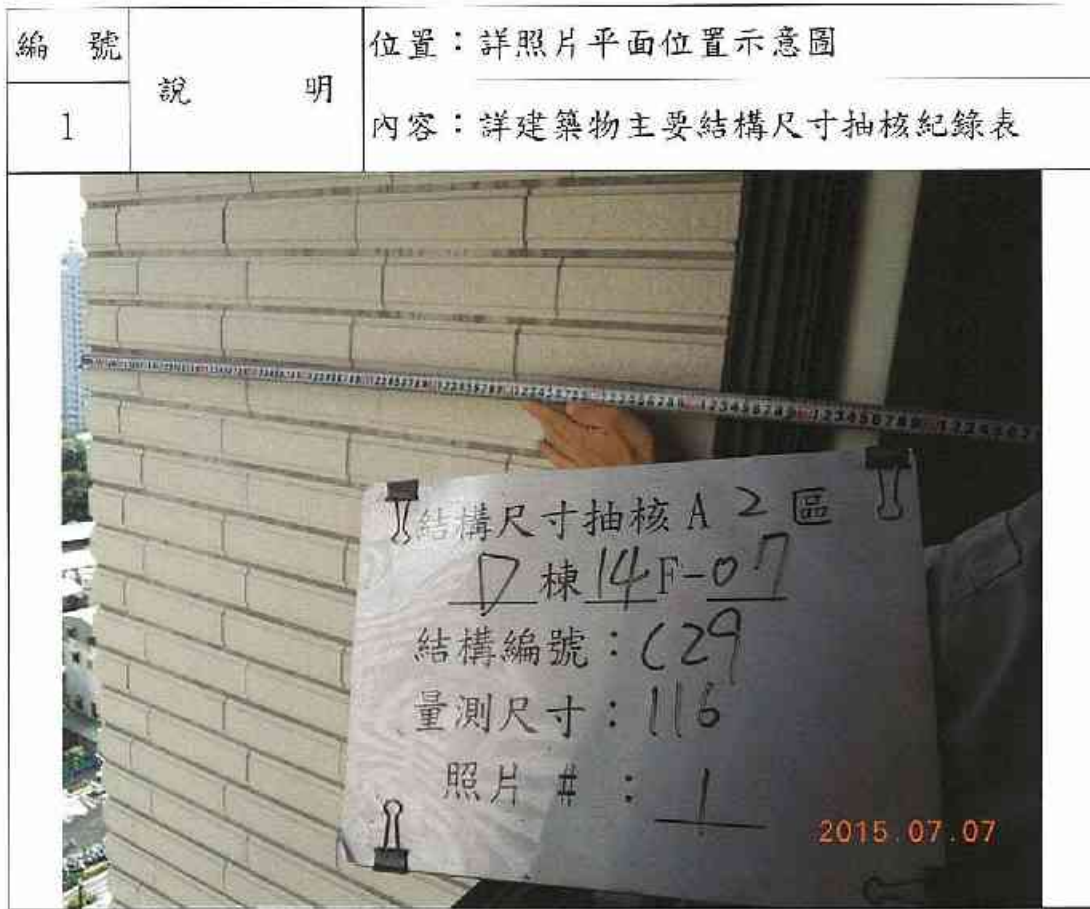 編號
1
說明
位置：詳照片平面位置示意圖
內容：詳建築物主要結構尺寸抽核紀錄表
結構尺寸抽核A 2 區
D棟14F-07
結構編號：C29
量測尺寸：116
照片 #：1
2015.07.07